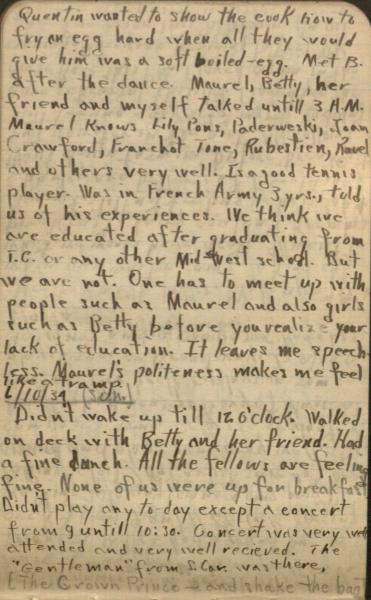 Quentin wanted to show the cook how to
fry an egg hard when all they would
give him was a soft boiled-egg. Met B.
after the dance. Maurel, Betty, her
friend and myself talked untill 3 A.M.
Maurel Knows Lily Pons, Paderweski, Joan
Crawford, Franchot Tone, Rubestien, Ravel
and others very well. Is a good tennis
player. Was in French Army 3 yrs., told
us of his experiences. We think we
are educated after graduating from
T.C. or any other Mid-West school. But
we are not. One has to meet up with
people such as Maurel and also girls
such as Betty before you realize your
lack of education. It leaves me speech-
less. Maurel's politeness makes me feel
like a tramp.
6/10/34 (Sun.)
Didn't wake up till 12 o'clock. Walked
on deck with Betty and her friend. Had
a fine lunch. All the fellows are feeling
fine. None of us were up for breakfast
Didn't play any to-day except a concert
from 9 untill 10:30. Concert was very well
attended and very well recieved. The
"Gentleman" from S. Car. was there,
(The Crown Prince - and shake the